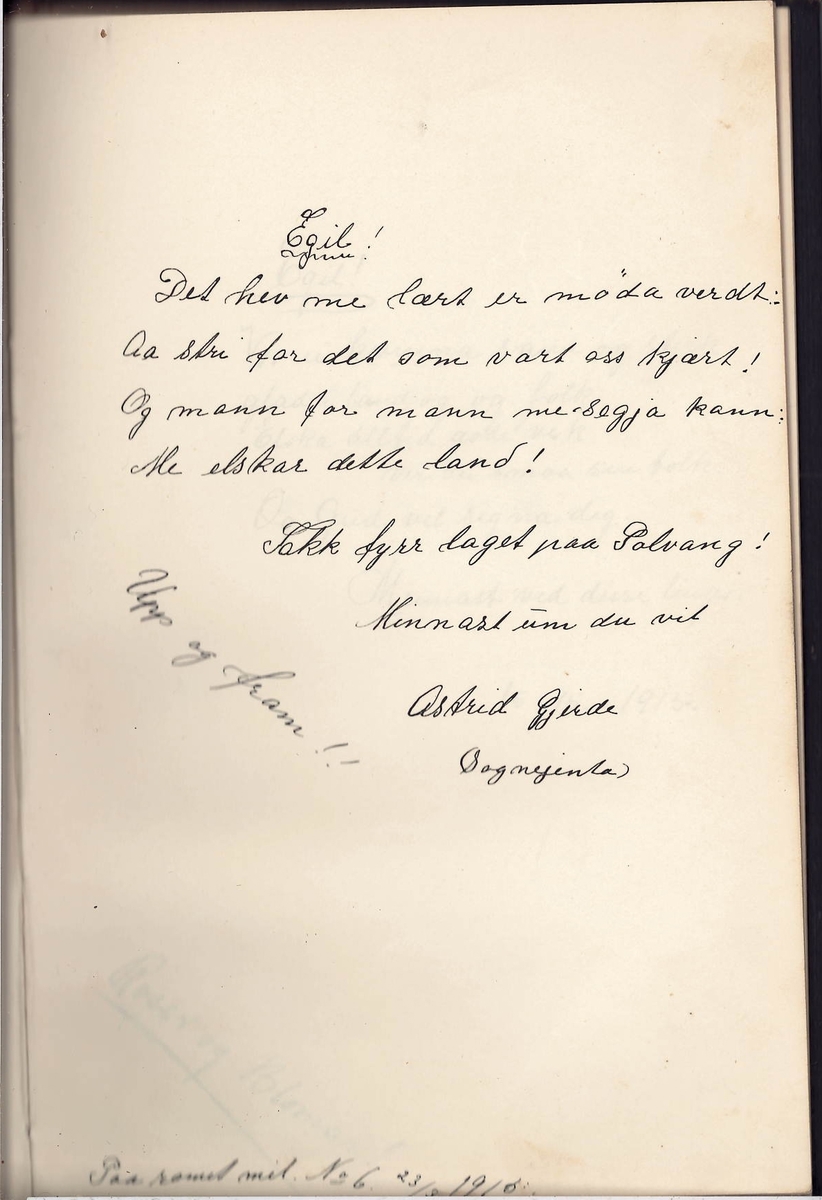 Egil!
Det hev me lært er möda verdt:
Aa stri for det som vart oss kjært!
Og mann for mann me segja kann:
Me elskar dette land!
Takk fyrr laget paa Solvang!
Minnast üm du vil
Upp og fram!!
Astrid Gjerde
(Sognejenta)
Paa romet mit. No 6. 23/